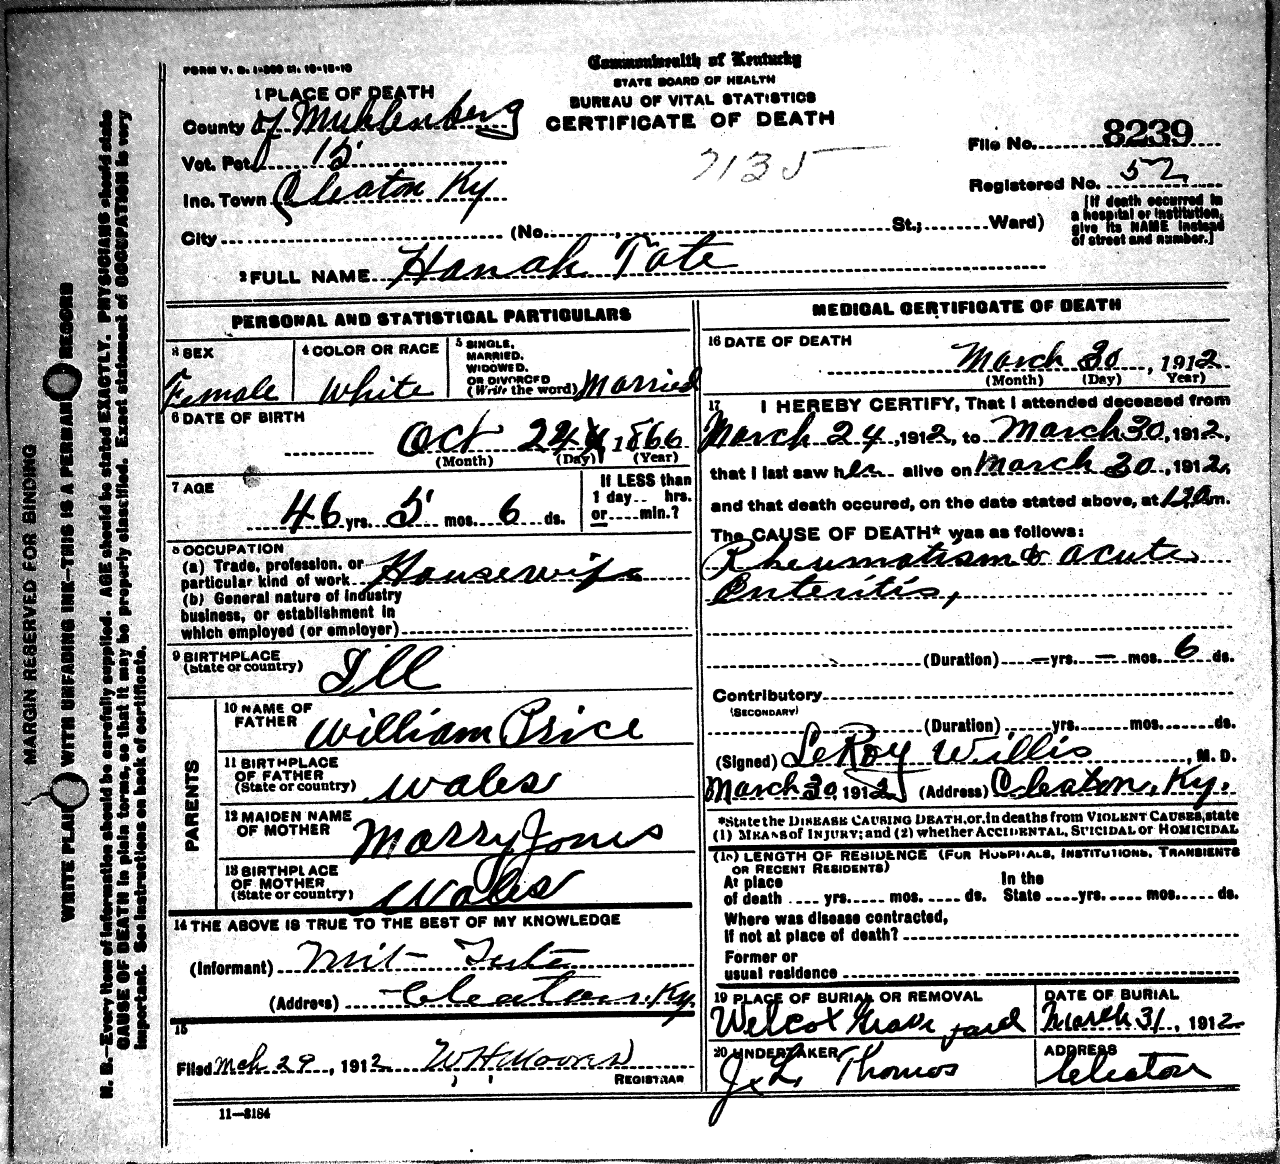 FORM V. S. 1-300 M. 10-18-10
Commonwealth of Kentucky
STATE BOARD OF HEALTH
BUREAU OF VITAL STATISTICS
CERTIFICATE OF DEATH
1 PLACE OF DEATH
County of Muhlenberg
Vot. Pct. 15
Inc. Town Cleaton Ky
City (No. , St.; Ward)
7135
File No. 8239
Registered No. 52
[If death occurred in
a hospital or institution,
give its NAME instead
of street and number.]
2 FULL NAME Hanah Tate
PERSONAL AND STATISTICAL PARTICULARS
3 SEX
Female
4 COLOR OR RACE
White
5 SINGLE,
MARRIED,
WIDOWED,
OR DIVORCED
(Write the word) Married
6 DATE OF BIRTH
Oct 24 1866
(Month) (Day) (Year)
7 AGE
46 yrs. 5 mos. 6 ds.
If LESS than
1 day.. hrs.
or....min.?
8 OCCUPATION
(a) Trade, profession, or
particular kind of work Housewife
(b) General nature of industry
business, or establishment in
which employed (or employer)
9 BIRTHPLACE
(State or country) Ill
PARENTS
10 NAME OF
FATHER William Price
11 BIRTHPLACE
OF FATHER
(State or country) Wales
12 MAIDEN NAME
OF MOTHER Marry Jones
13 BIRTHPLACE
OF MOTHER
(State or country) Wales
14 THE ABOVE IS TRUE TO THE BEST OF MY KNOWLEDGE
(Informant)
(Address) Cleaton, Ky.
15
Filed Mch 29, 1912 W H Moores
REGISTRAR
11—3184
MEDICAL CERTIFICATE OF DEATH
16 DATE OF DEATH
March 30, 1912
(Month) (Day) (Year)
17 I HEREBY CERTIFY, That I attended deceased from
March 24, 1912, to March 30, 1912,
that I last saw her alive on March 30, 1912,
and that death occured, on the date stated above, at m.
The CAUSE OF DEATH* was as follows:
Rheumatism & acute
Enteritis,
(Duration) — yrs. — mos. 6 ds.
Contributory
(SECONDARY)
(Duration) yrs. mos. ds.
(Signed) LeRoy Willis, M. D.
March 30, 1912 (Address) Cleaton, Ky.
*State the DISEASE CAUSING DEATH, or, in deaths from VIOLENT CAUSES, state
(1) MEANS of INJURY; and (2) whether ACCIDENTAL, SUICIDAL or HOMICIDAL
(18) LENGTH OF RESIDENCE (FOR HOSPITALS, INSTITUTIONS, TRANSIENTS
OR RECENT RESIDENTS)
At place In the
of death .... yrs. mos. ds. State ....yrs. mos. ds.
Where was disease contracted,
If not at place of death?
Former or
usual residence
19 PLACE OF BURIAL OR REMOVAL
Welcox Grave yard
DATE OF BURIAL
March 31, 1912
20 UNDERTAKER
J. L. Thomas
ADDRESS
Cleaton
MARGIN RESERVED FOR BINDING
WRITE PLAINLY WITH UNFADING INK—THIS IS A PERMANENT RECORD
N. B.—Every item of information should be carefully supplied. AGE should be stated EXACTLY. PHYSICIANS should state
CAUSE OF DEATH in plain terms, so that it may be properly classified. Exact statement of OCCUPATION is very
important. See instructions on back of certificate.